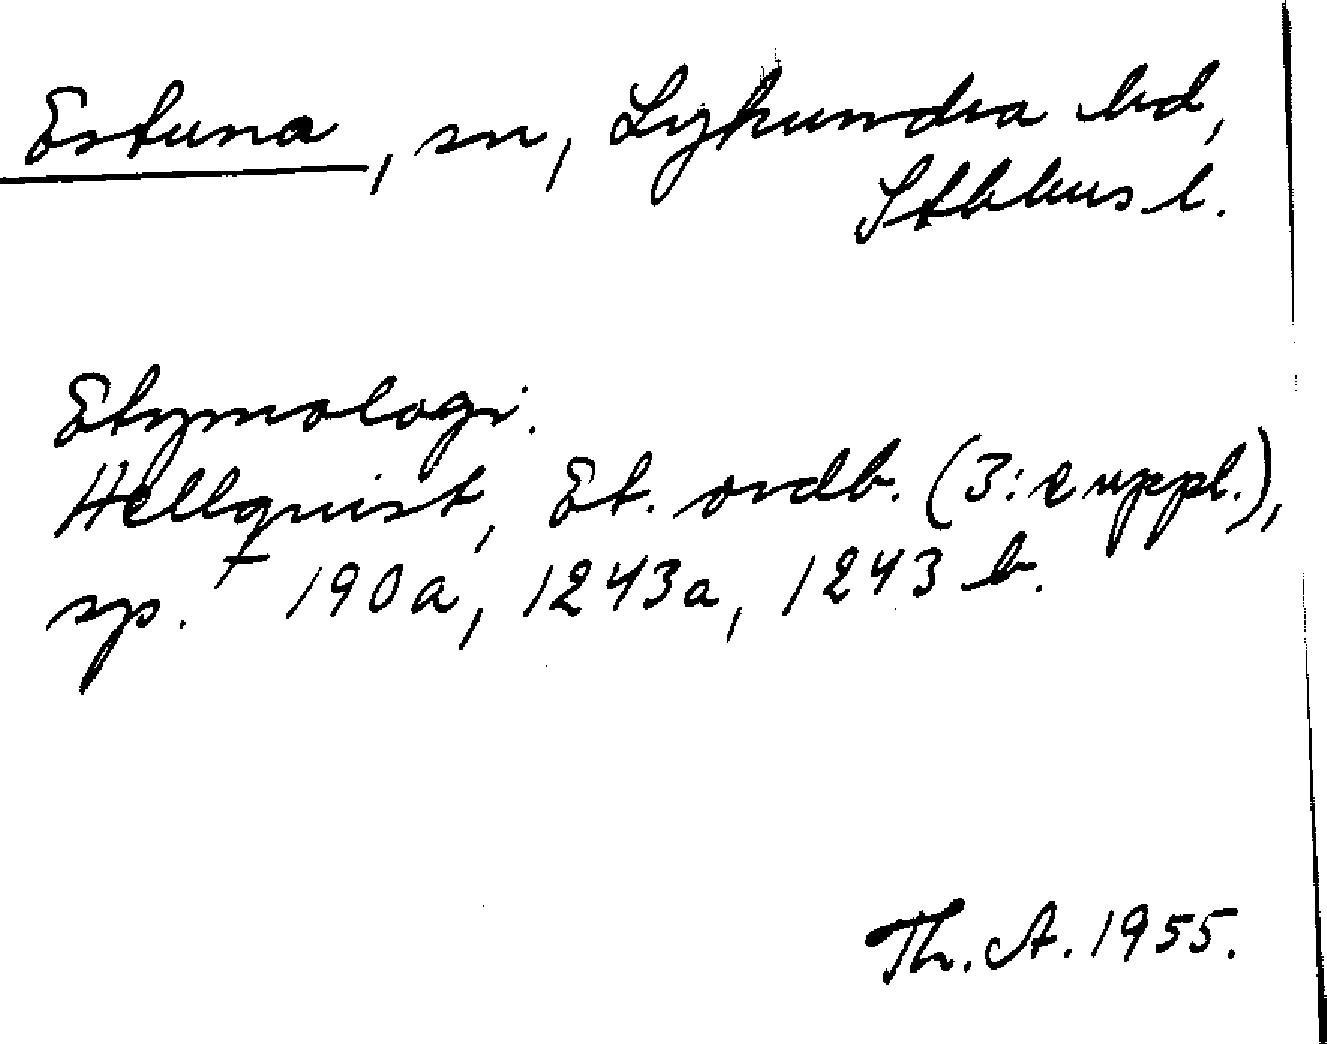 Estuna, sn, Lyhundra hd,
Sthlms l.
Etymologi.
Hellquist, Et. ordb. (3: e uppl.),
sp. 190a, 1243a, 1243 b.
Th. A. 1955.